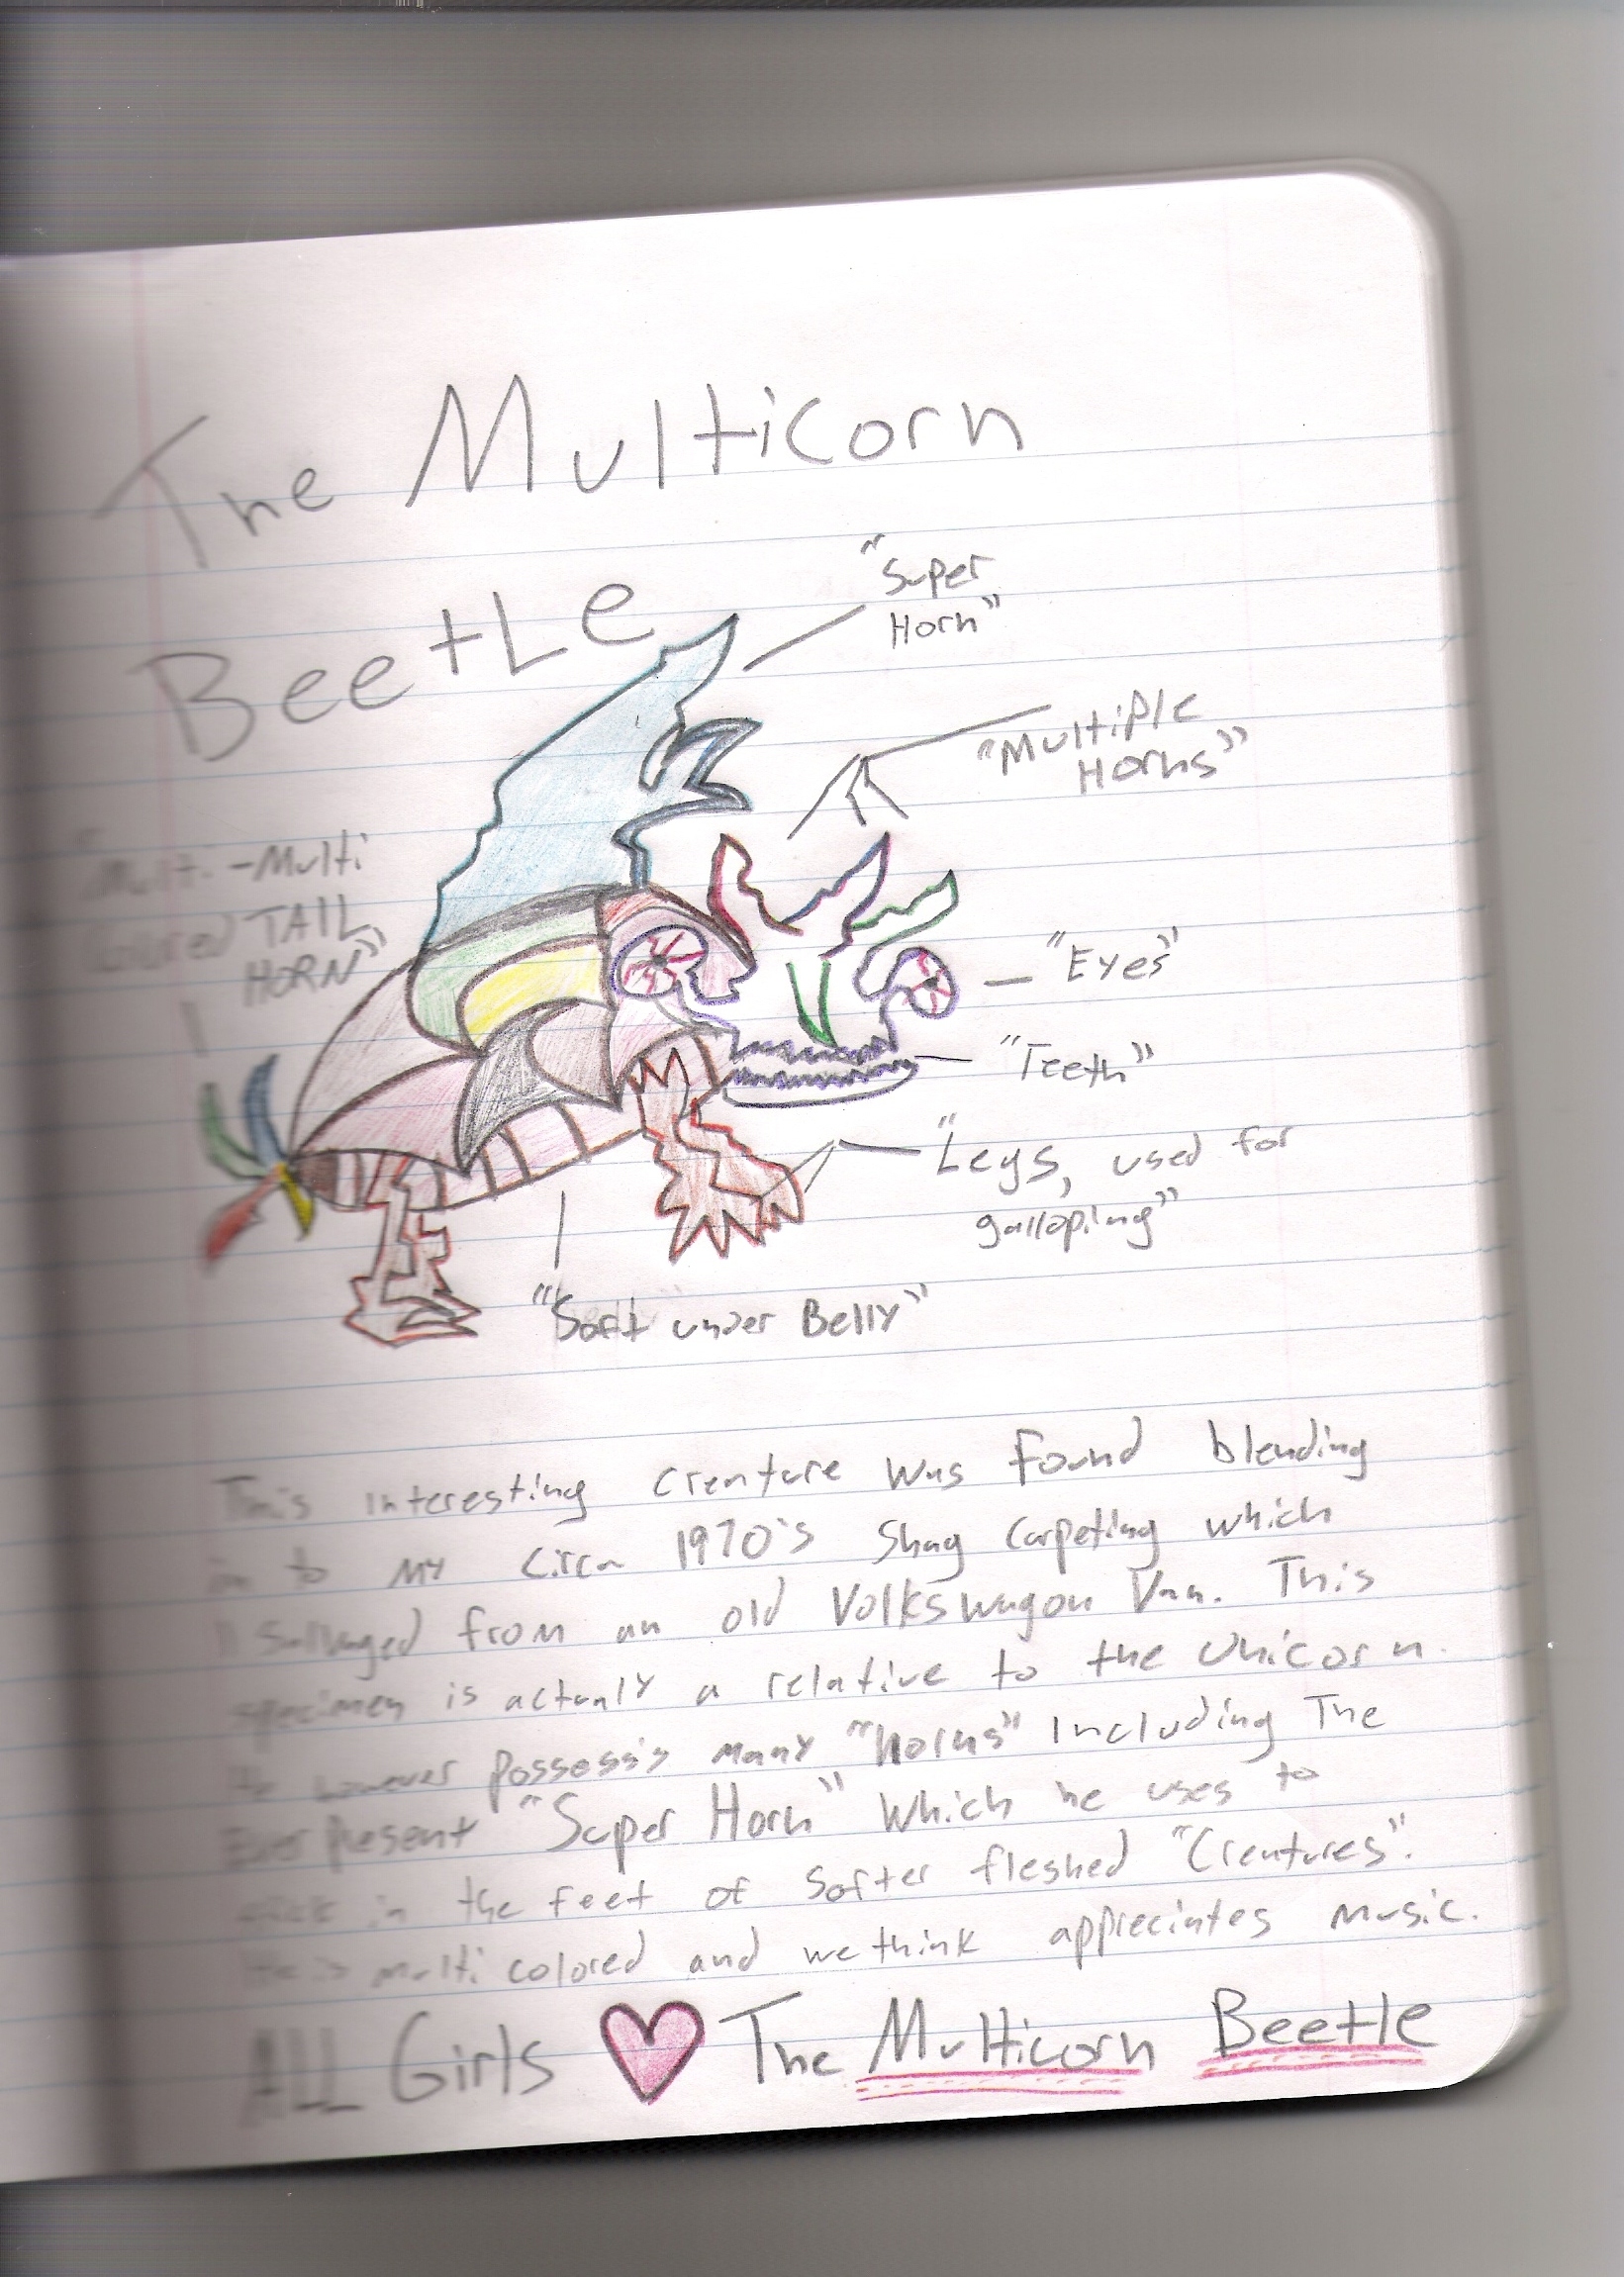 The Multicorn
Beetle
"Super
Horn"
"Multiple
Horns"
"Multi-Multi
colored TAIL
HORN"
"Eyes"
"Teeth"
"Legs, used for
galloping"
"Soft under Belly"
This interesting creature was found blending
in to my circa 1970's shag carpeting which
I sallvaged from an old Volkswagon Van. This
specimen is actually a relative to the Unicorn.
He however possess's many "horns" Including The
Ever Present "Super Horn" Which he uses to
stick in the feet of softer fleshed "Creatures".
He is multi colored and we think appreciates music.
ALL Girls The Multicorn Beetle